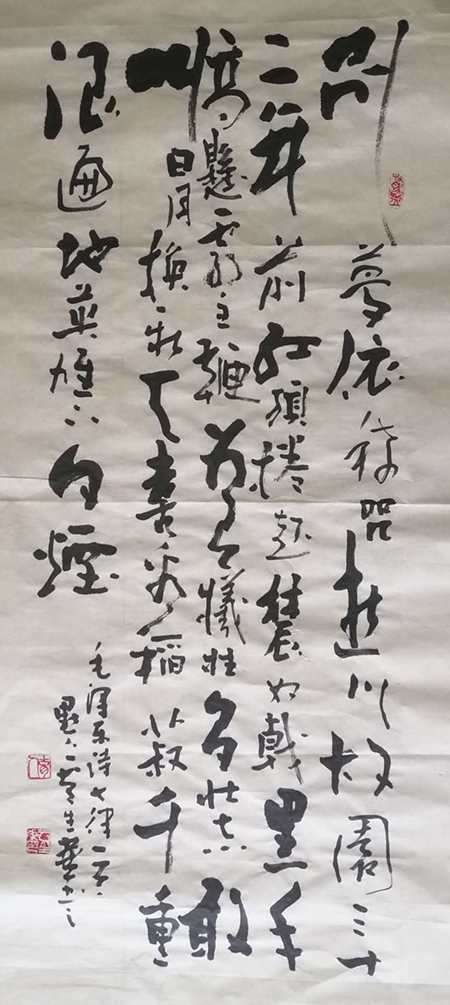 别夢依稀咒逝川故園三十
二年前红旗捲起農奴戟黑手
高懸霸主鞭为有犧牲多壮志敢
叫日月換新天喜看稻菽千重
浪遍地英雄下夕煙
毛澤东诗七律一首